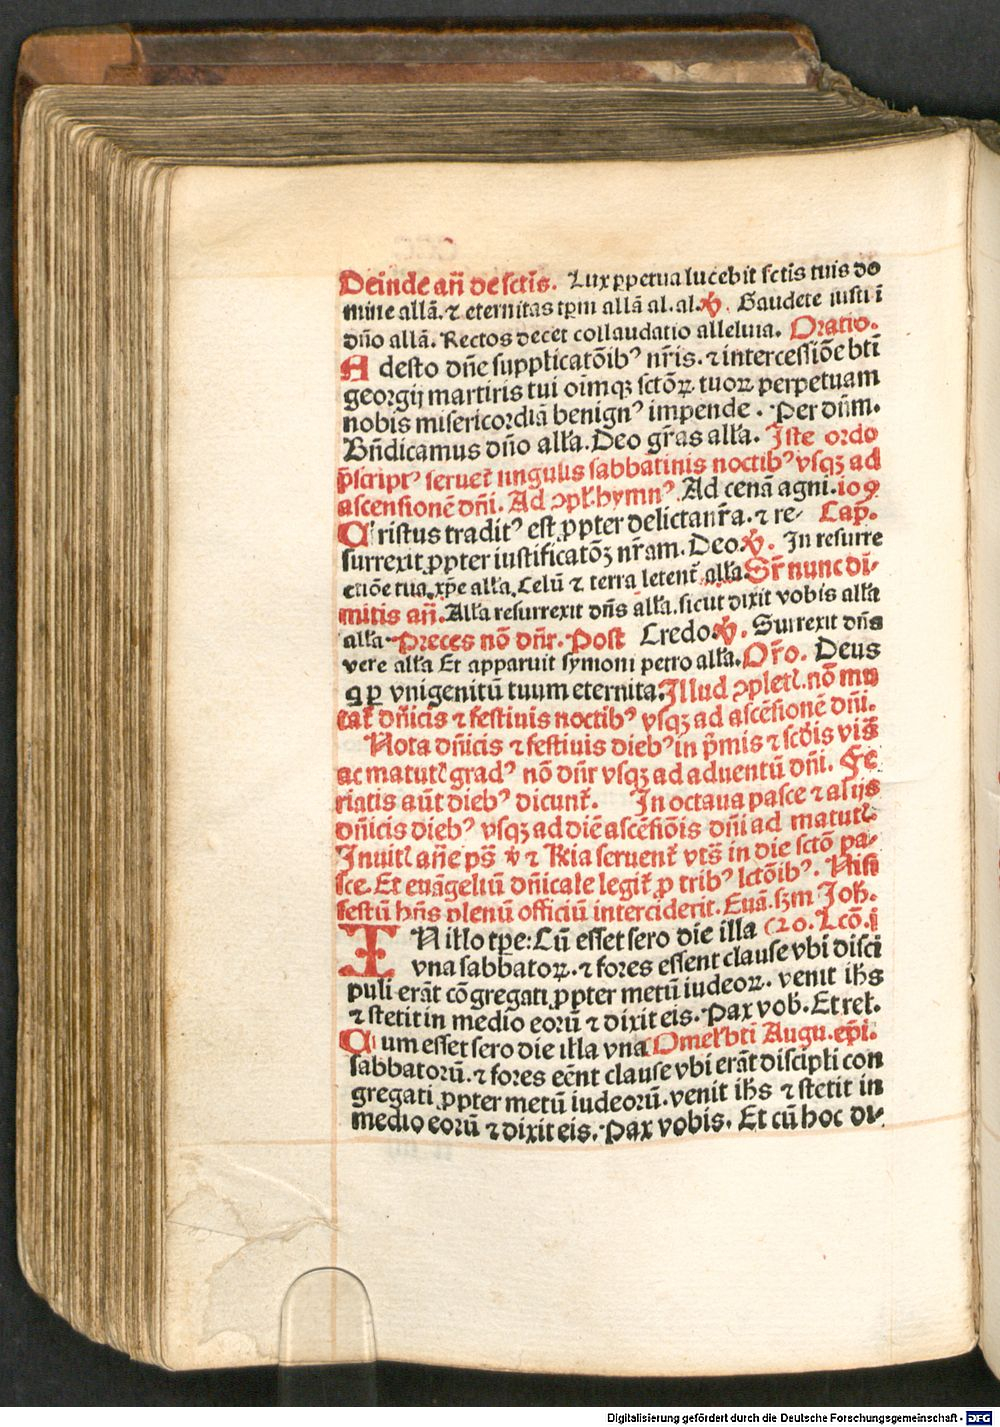 Deinde añ de sctis̄. Lux ꝑpetua lucebit sctis̄ tuis do
mine allā. ⁊ eternitas tꝑm allā al. al. ℣. Gaudete iusti ī
dño allā. Rectos decet collaudatio alleluia. Oratio.
Adesto dñe supplicatōib⁹ nr̄is. ⁊ intercessiōe bti̅
georgij martiris tui oīmqꝫ sctōꝝ tuoꝝ perpetuam
nobis misericordiā benign⁹ impende. Per dn̄m.
Bn̄dicamus dño alla. Deo gr̄as alla. Iste ordo
p̄script⁹ seruet̄ singulis sabbatinis noctib⁹ vsqꝫ ad
ascensionē dñi. Ad ꝯpl̄. hymn⁹. Ad cenā agni. 109
Cristus tradit⁹ est ꝓpter delicta nr̄a. ⁊ re- Cap̄.
surrexit ꝓpter iustificatōꝫ nr̄am. Deo. ℣. In resurre
ctiōe tua xp̄e alla. Celū ⁊ terra letent̄ alla. Sr̄ nunc di-
mitis añ. Alla resurrexit dn̄s alla. sicut dixit vobis alla
alla. Preces nō dn̄r. Post Credo. ℣. Surrexit dn̄s
vere alla Et apparuit symoni petro alla. Or̄o. Deus
q ꝑ vnigenitū tuum eternita. Illud ꝯpletl. nō mu
tat̄ dn̄icis ⁊ festiuis noctib⁹ vsqꝫ ad ascēsionē dñi.
Nota dn̄icis ⁊ festiuis dieb⁹ in p̄mis ⁊ scdis vis̄
ac matutl grad⁹ nō dn̄r vsqꝫ ad aduentū dñi. Fe
riatis aūt dieb⁹ dicunt̄. In octaua pasce ⁊ alijs
dn̄icis dieb⁹ vsqꝫ ad diē ascēsiōis dñi ad matutl.
Inuitl añe ps̄ ℣ ⁊ Rīa seruent̄ vts̄ in die sctō pa-
sce. Et euāngeliū dn̄icale legit̄ ꝓ trib⁹ lctōib⁹. Nisi
festū hn̄s plenū officiū interciderit. Euā. sꝫm Joh.
IN illo tꝑe: Cū esset sero die illa c20. Lcō. i
vna sabbatoꝝ. ⁊ fores essent clause vbi disci
puli erāt cōgregati ꝓpter metū iudeoꝝ. venit ih̄s
⁊ stetit in medio eorū ⁊ dixit eis. Pax vob. Et rel.
Cum esset sero die illa vna Omel. bti̅ Augu. ep̄i.
sabbatorū. ⁊ fores eēnt clause vbi erāt discipli con
gregati ꝓpter metū iudeorū. venit ih̄s ⁊ stetit in
medio eorū ⁊ dixit eis. Pax vobis. Et cū hoc di-
Digitalisierung gefördert durch die Deutsche Forschungsgemeinschaft - DFG